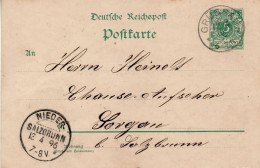 Deutsche Reichspost
Postkarte
An
Herrn Heinelt
Chausse-Aufseher
Sorgau
b. Salzbrunn
NIEDER-
SALZBRUNN
7-8V